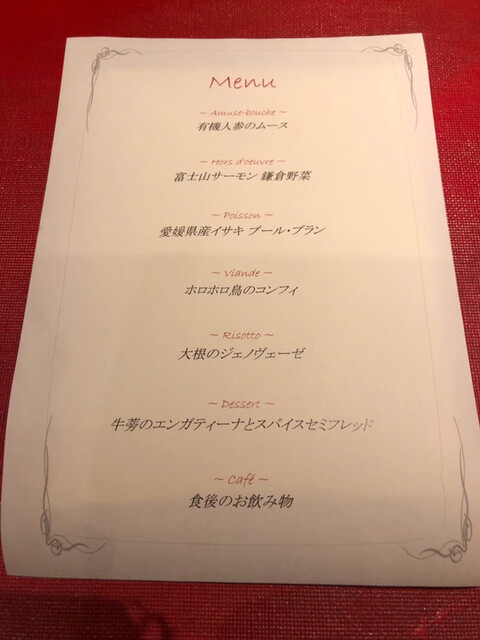 Menu
~ Amuse-bouche ~
有機人参のムース
~ Hors d'oeuvre ~
富士山サーモン 鎌倉野菜
~ Poisson ~
愛媛県産イサキ ブール・ブラン
~ Viande ~
ホロホロ鳥のコンフィ
~ Risotto ~
大根のジェノヴェーゼ
~ Dessert ~
牛蒡のエンガティーナとスパイスセミフレッド
~ Café ~
食後のお飲み物